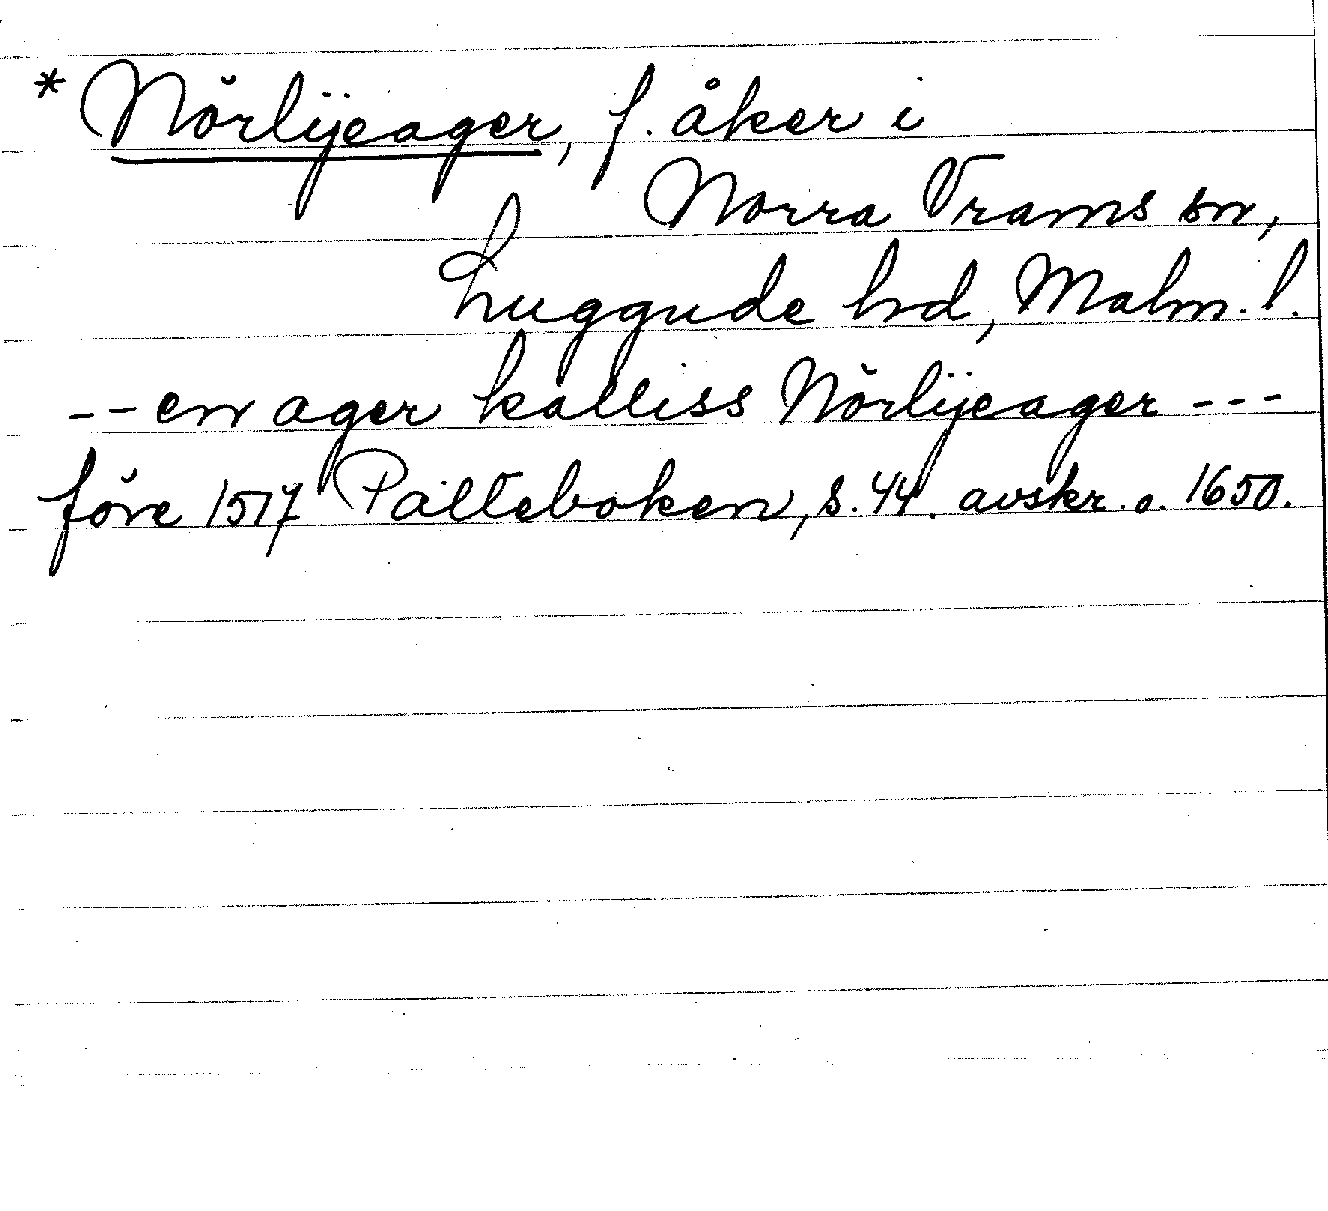 * Nörlÿeager, f. åker i
Norra Vrams sn,
Luggude hd, Malm. l.
-- en ager kalliss Nörlÿeager ---
före 1517 Palteboken, s. 44. avskr. o. 1650.